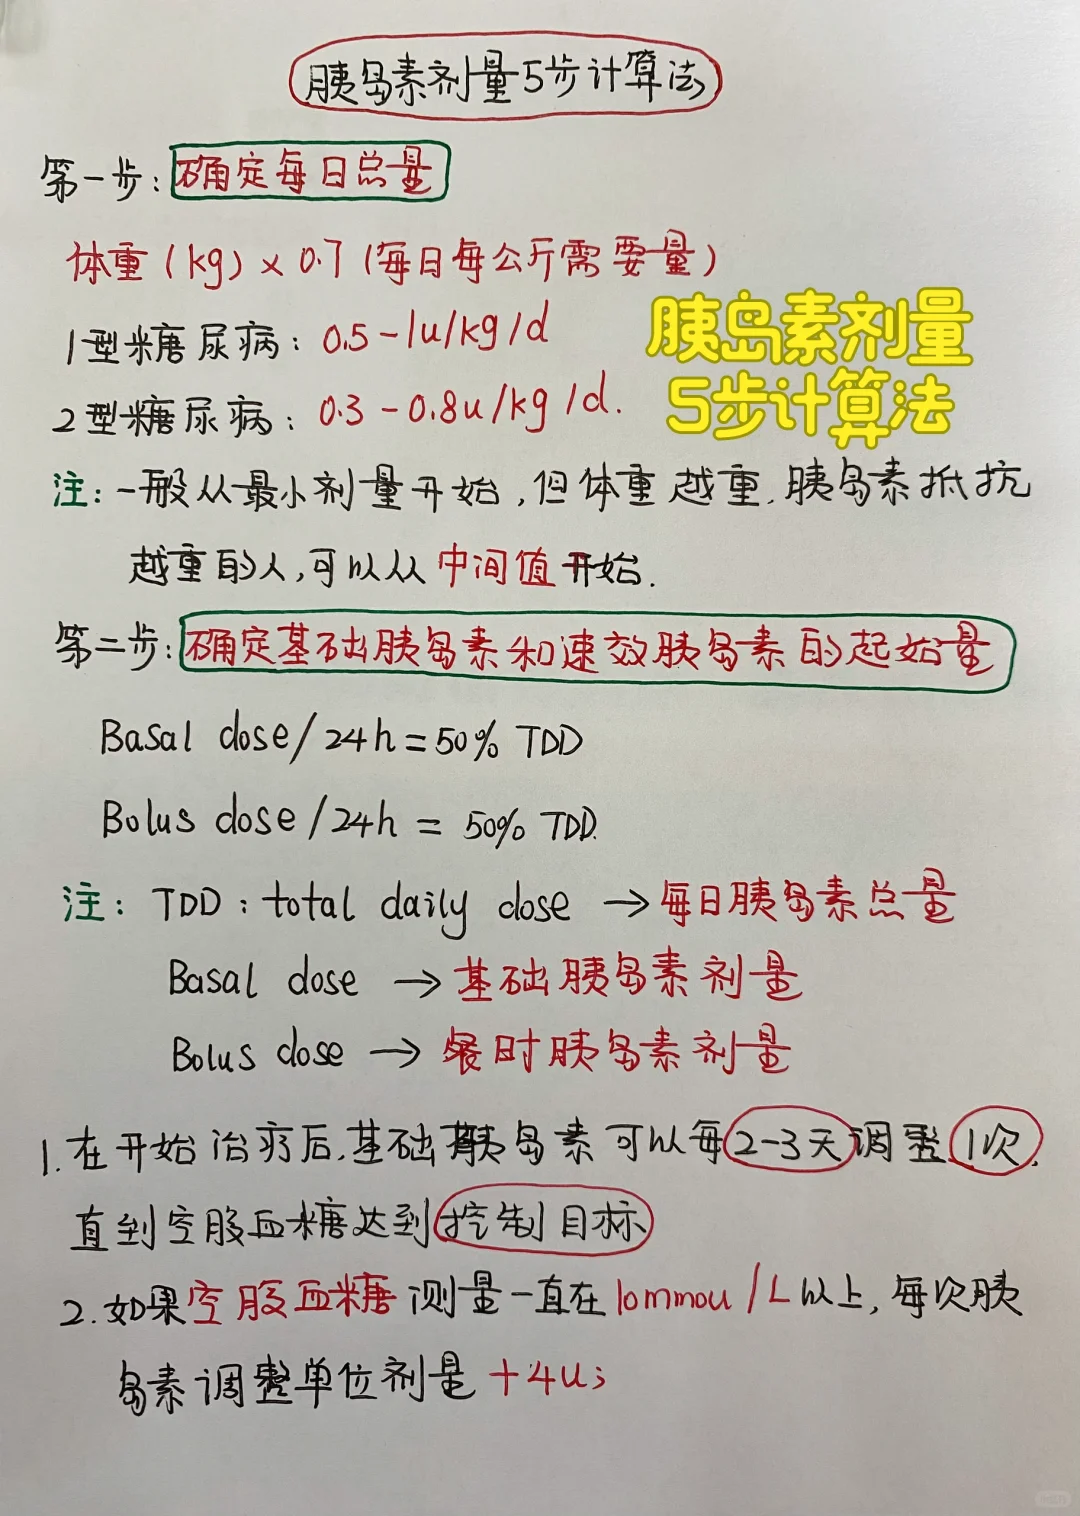 胰岛素剂量5步计算法
第一步：确定每日总量
体重(kg)×0.7(每日每公斤需要量)
1型糖尿病：0.5-1u/kg/d
2型糖尿病：0.3-0.8u/kg/d.
胰岛素剂量
5步计算法
注：一般从最小剂量开始，但体重越重，胰岛素抵抗
越重的人，可以从中间值开始.
第二步：确定基础胰岛素和速效胰岛素的起始量
Basal dose/24h=50% TDD
Bolus dose/24h = 50% TDD.
注：TDD：total daily dose →每日胰岛素总量
Basal dose →基础胰岛素剂量
Bolus dose →餐时胰岛素剂量
1.在开始治疗后,基础胰岛素可以每2-3天调整1次,
直到空腹血糖达到控制目标
2.如果空腹血糖测量一直在10mmou/L以上,每次胰
岛素调整单位剂是+4u;